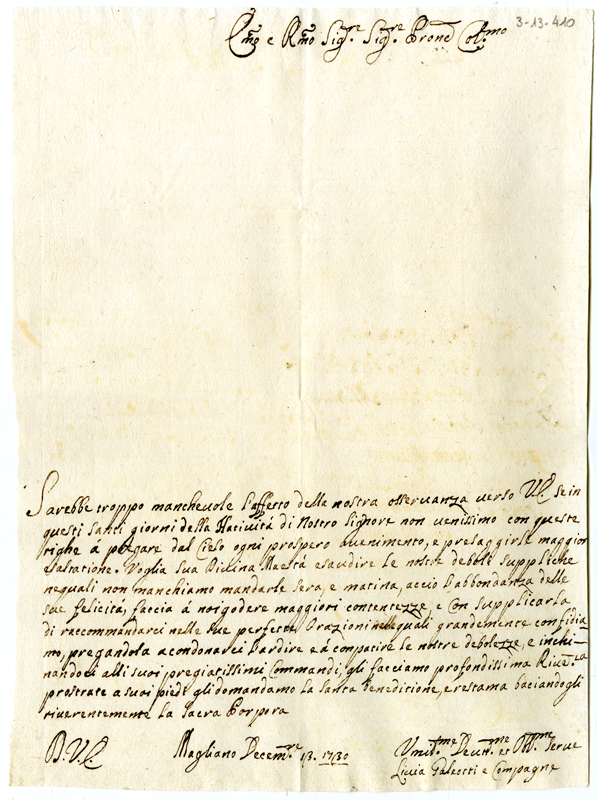 3-13-410
Emo e Rmo Sigre. Sigre. Prone Colmo
Sarebbe troppo manchevole l'affetto della nostra osservanza verso V.E. se in
questi santi giorni della Natività di Nostro Signore non venissimo con queste
righe a pregare dal Cielo ogni prospero avenimento, e presaggirle maggior
esaltatione. Voglia sua Divina Maestà esaudire le nostre debole suppliche
nequali non manchiamo mandarle sera, e matina, acciò l'abbondanza delle
sue felicità, faccia à noi godere maggiori contentezze, e con supplicarla
di raccommandarci nelle sue perfette Orazioni nelequali grandemente confidia
mo, pregandola a condonarci l'ardire e à compatire le nostre debolezze, e inchi-
nandoci alli suoi pregiatissimi Commandi, gli facciamo profondissima Riveza
prostrate a suoi piedi gli domandamo la santa Beneditione, e restama baciandogli
riverentemente la sacra Porpora
D.V.E.
Magliano Decemre 13. 1730
Vmilme Devme et Serve
Livia Galeotti e Compagne